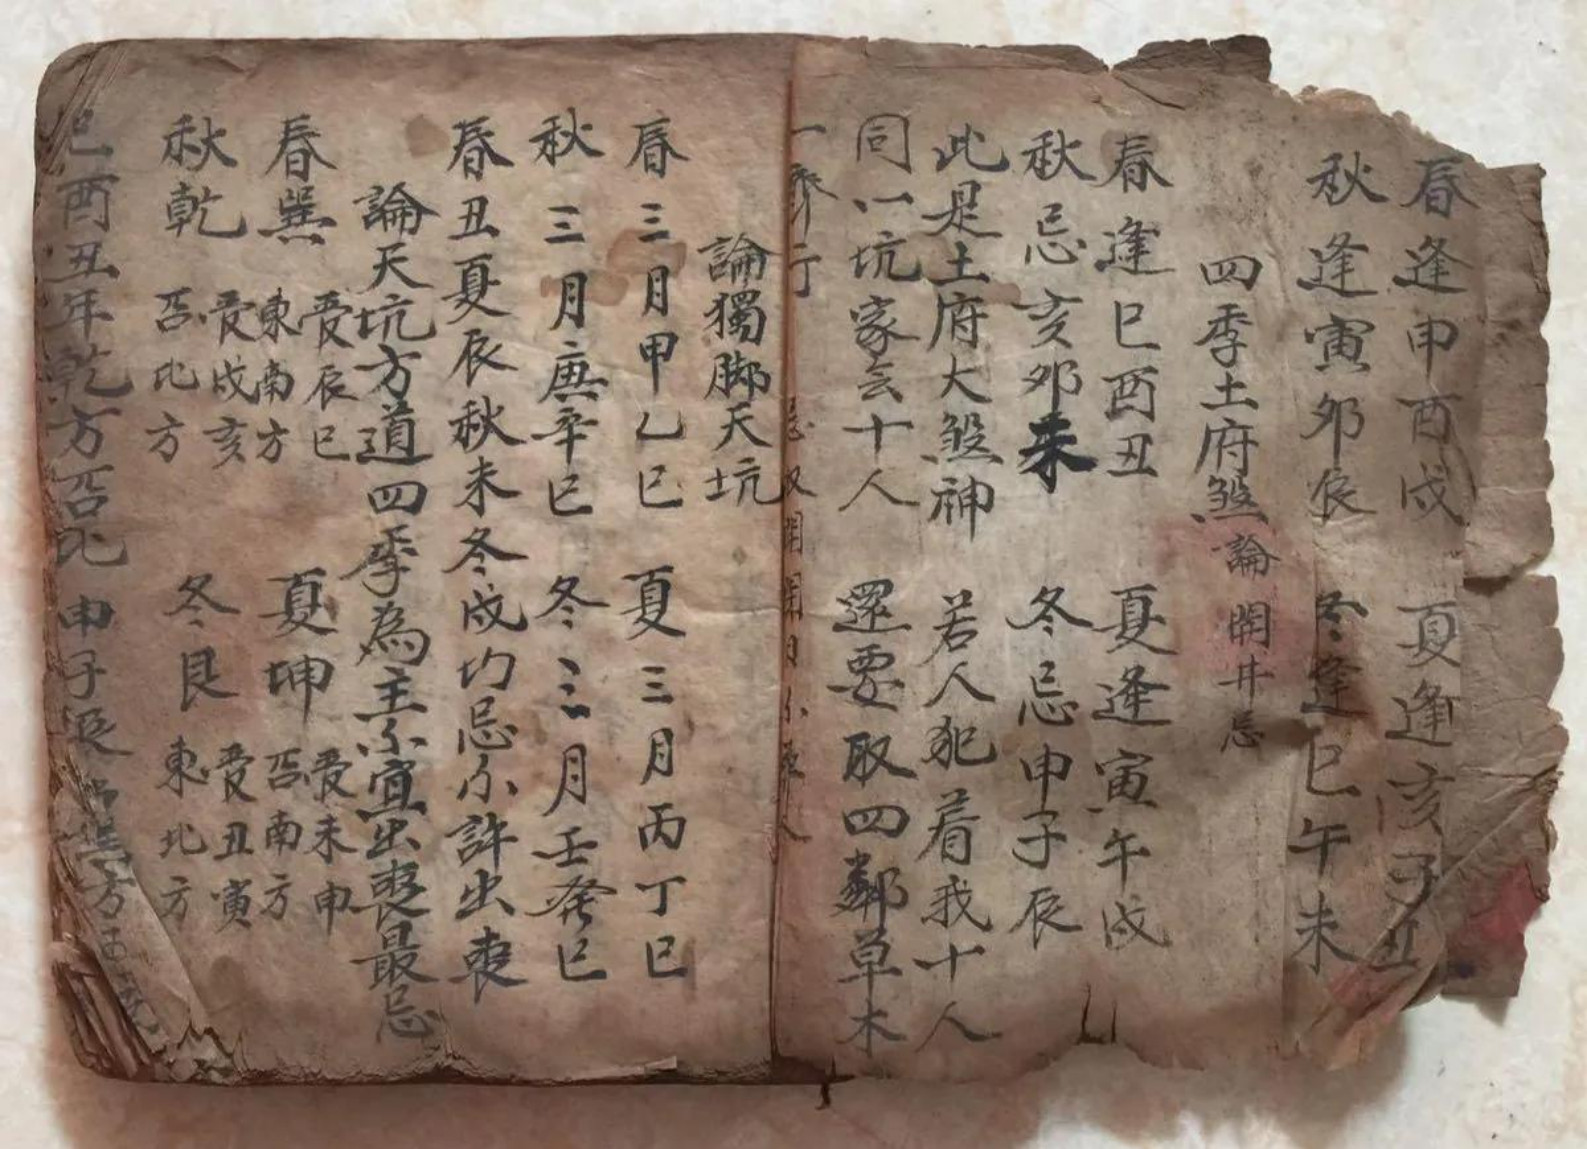 春逢申酉戌 夏逢亥子丑
秋逢寅卯辰 冬逢巳午未
四季土府煞 論開井忌
春逢巳酉丑 夏逢寅午戌
秋忌亥卯未 冬忌申子辰
此是土府大煞神 若人犯着我十人
同一坑家会十人 還要取四鄰草木
一齊行
論獨脚天坑
春三月甲乙巳 夏三月丙丁巳
秋三月庚辛巳 冬三月壬癸巳
春丑夏辰秋未冬戌圴忌不許出喪
論天坑方道四季為主不宜出喪最忌
春巽 辰巳 東南方 夏坤 未申 南方
秋乾 戌亥 北方 冬艮 丑寅 東北方
巳酉丑年乾方 北 申子辰 巽方